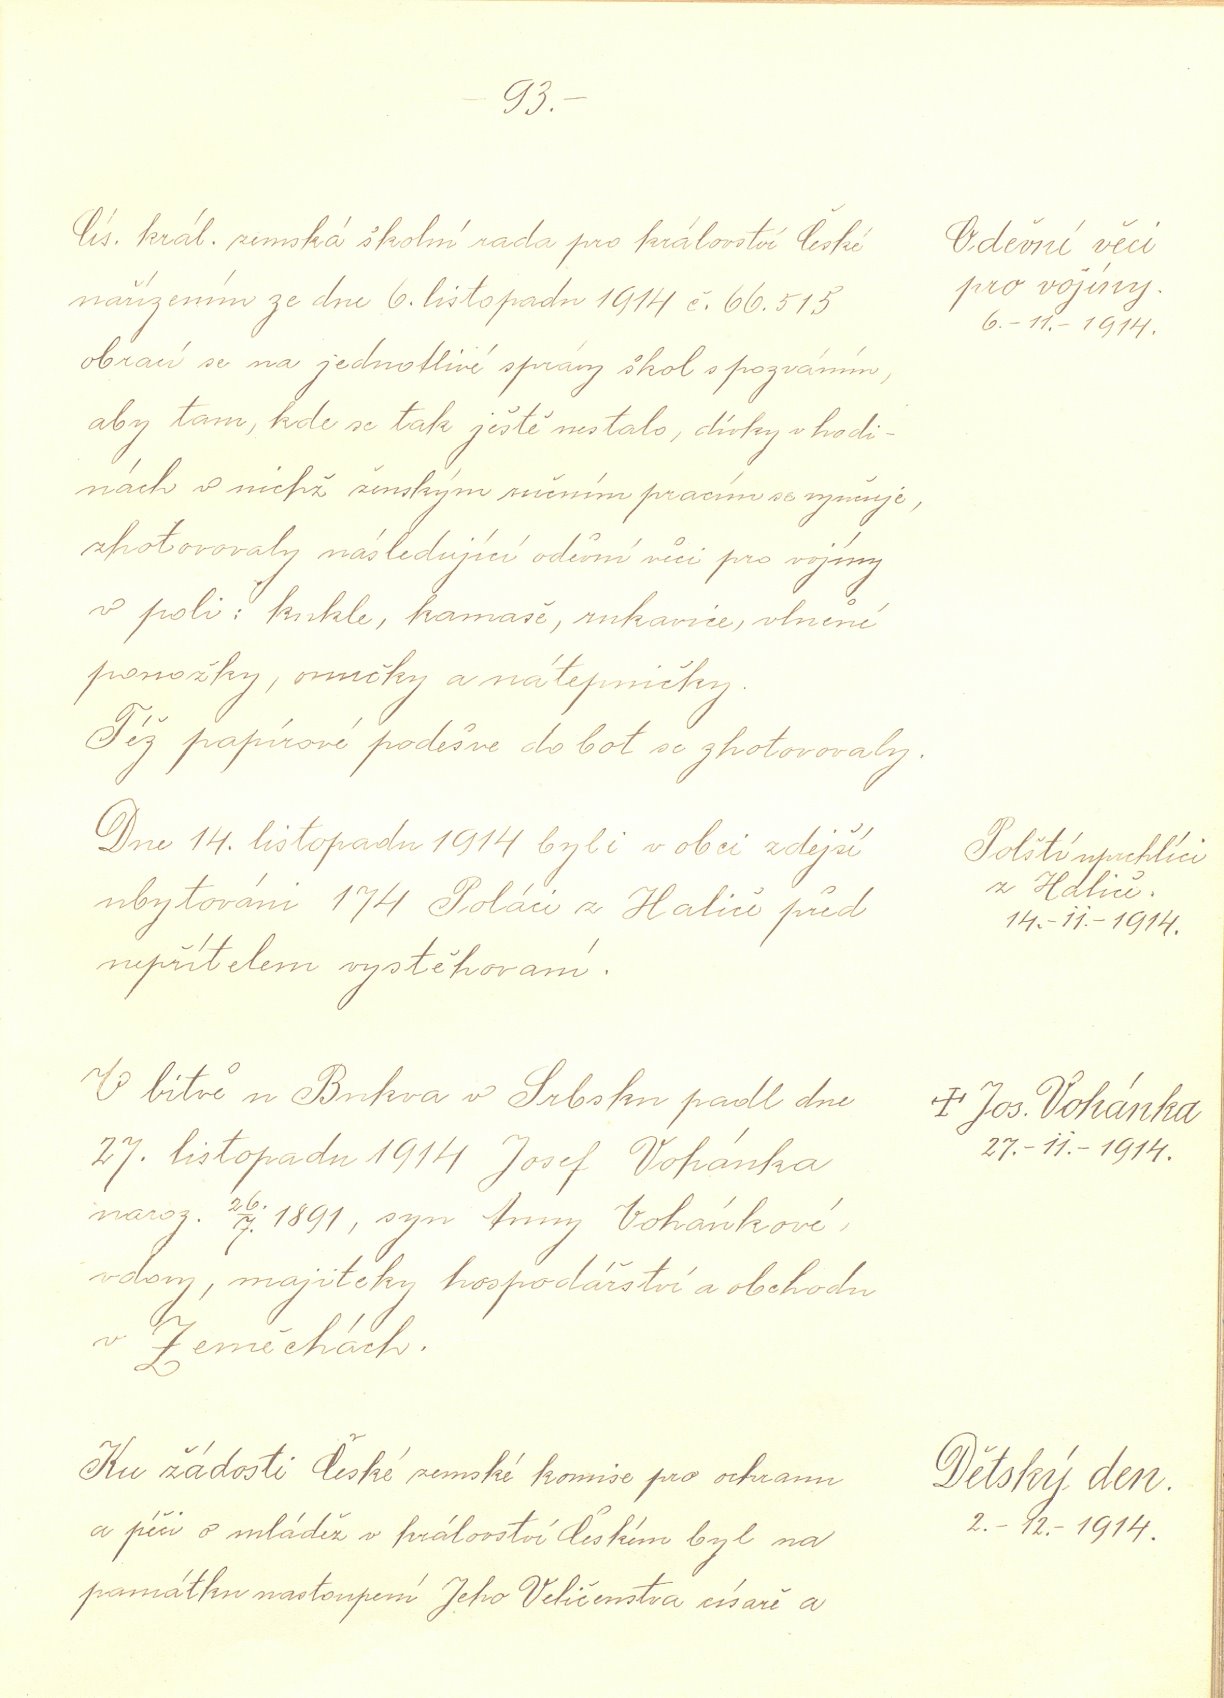 - 93. -
Cís. král. zemská školní rada pro království České
nařízením ze dne 6. listopadu 1914 č. 66.515
obrací se na jednotlivé správy škol s pozváním,
aby tam, kde se tak ještě nestalo, dívky v hodi-
nách v nichž ženským ručním pracím se vyučuje,
zhotovovaly následující oděvní věci pro vojíny
v poli: kukle, kamaše, rukavice, vlněné
ponožky, onučky a nátepničky.
Též papírové podešve do bot se zhotovovaly.
Oděvní věci
pro vojíny.
6. - 11. - 1914.
Dne 14. listopadu 1914 byli v obci zdejší
ubytováni 174 Poláci z Haliče před
nepřítelem vystěhovaní.
Polští uprchlíci
z Haliče.
14. - 11. - 1914.
V bitvě u Bukva v Srbsku padl dne
27. listopadu 1914 Josef Vohánka
naroz. 26./7. 1891, syn Anny Vohánkové,
vdovy, majitelky hospodářství a obchodu
v Zeměchách.
✝ Jos. Vohánka
27. - 11. - 1914.
Ku žádosti České zemské komise pro ochranu
a péči o mládež v království Českém byl na
památku nastoupení Jeho Veličenstva císaře a
Dětský den.
2. - 12. - 1914.